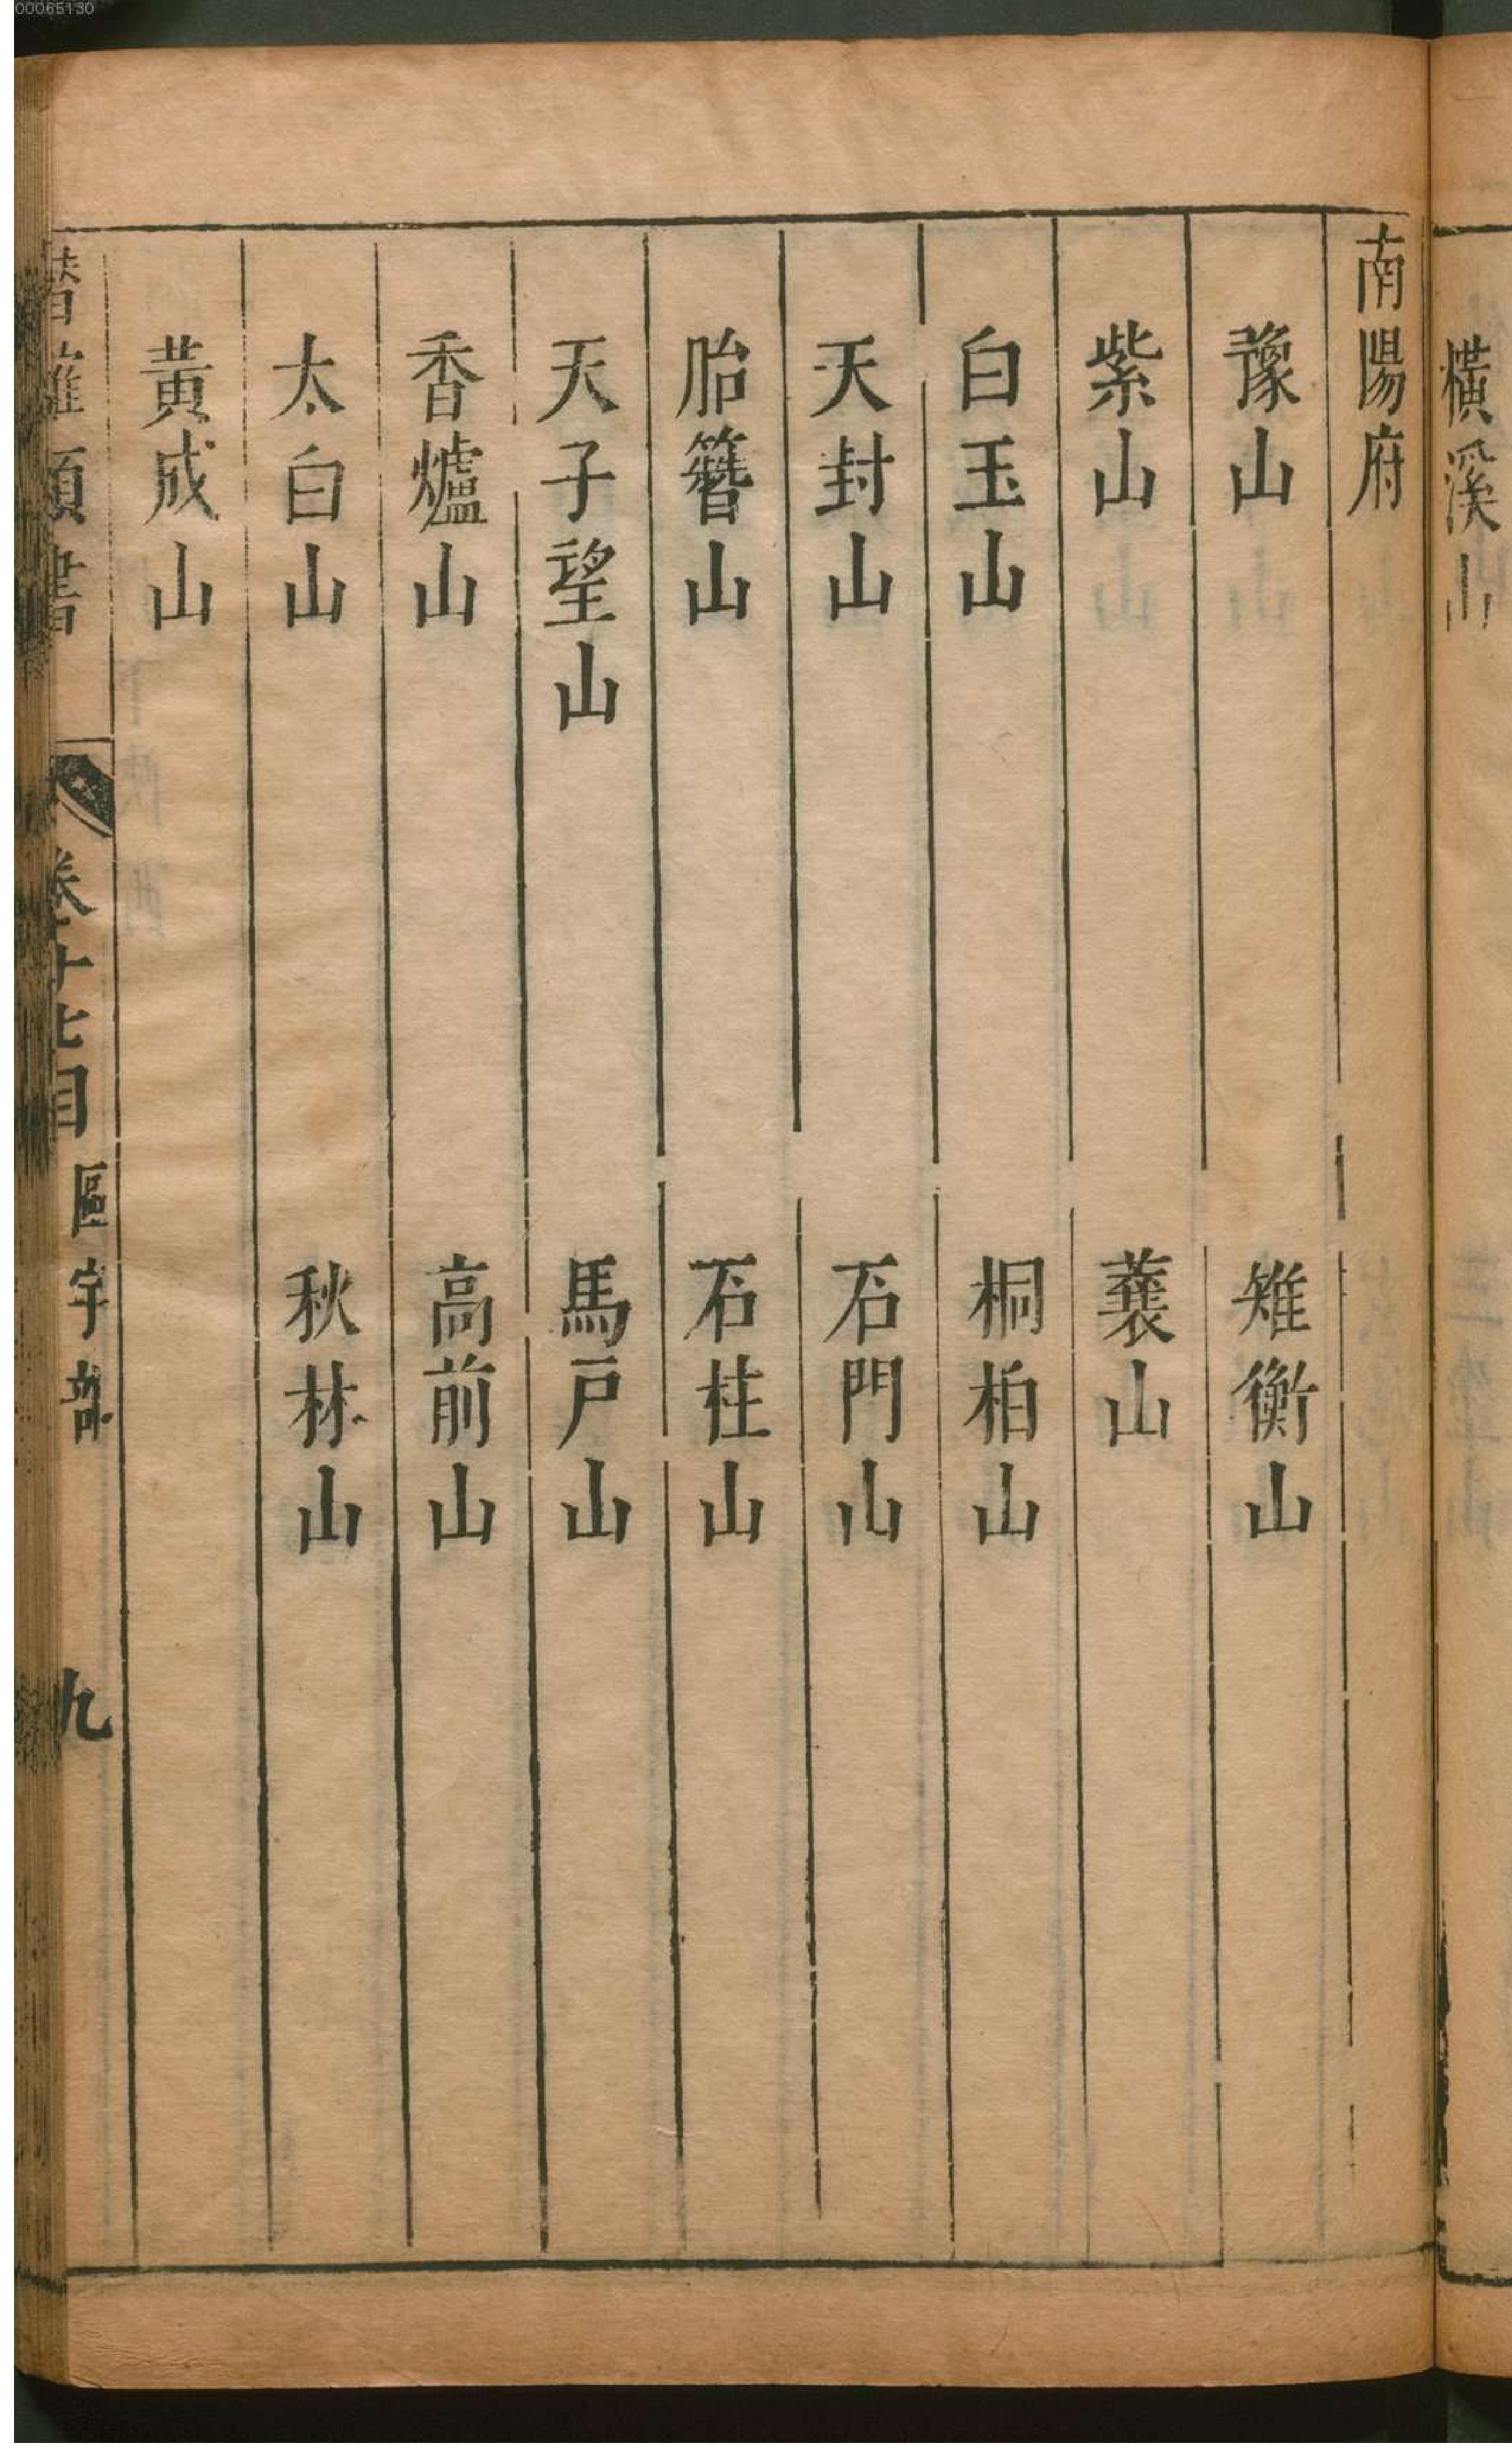 00065130
橫溪山
南陽府
豫山 雉衡山
紫山 蘘山
白玉山 桐柏山
天封山 石門山
胎簪山 石柱山
天子望山 馬戶山
香爐山 高前山
太白山 秋林山
黃成山
潛確類書 卷二十七目 區宇部 九